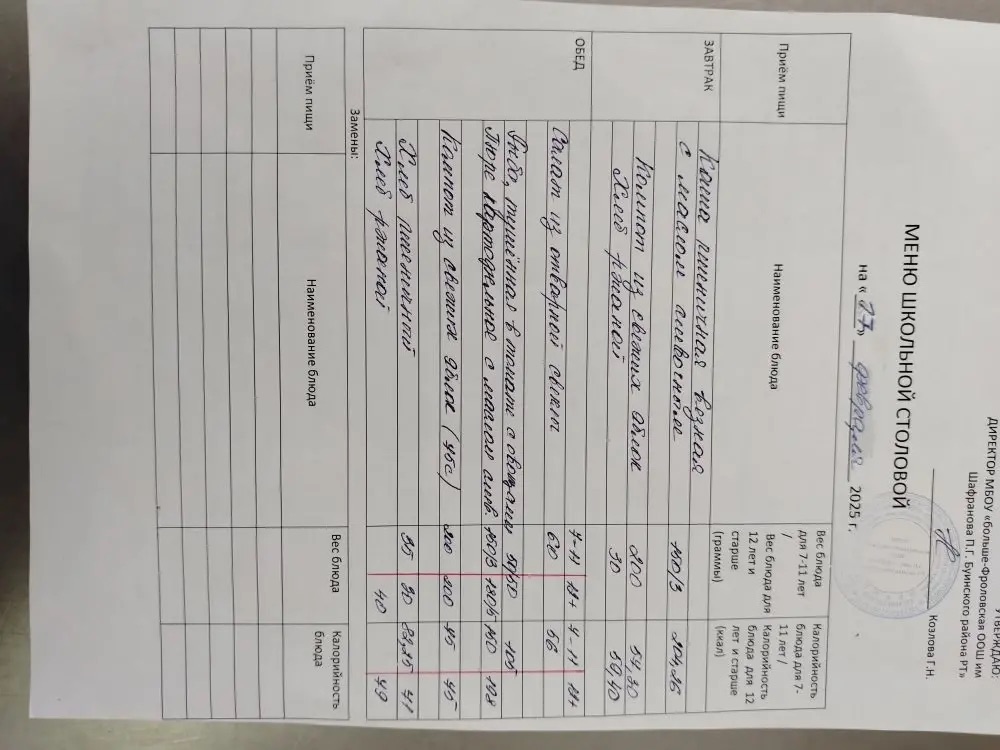 УТВЕРЖДАЮ:
ДИРЕКТОР МБОУ «больше-Фроловская ООШ им
Шафранова П.Г. Буинского района РТ»
Козлова Г.Н.
МЕНЮ ШКОЛЬНОЙ СТОЛОВОЙ
на « 27» февраля 2025 г.
Приём пищи Наименование блюда Вес блюда для 7-11 лет / Вес блюда для 12 лет и старше (граммы) Калорийность блюда для 7-11 лет / Калорийность блюда для 12 лет и старше (ккал)
ЗАВТРАК Каша пшеничная вязкая
с маслом сливочным 150/3 204,26
Компот из свежих яблок 200 54,30
Хлеб ржаной 30 59,40
7-11 12+ 7-11 12+
ОБЕД Салат из отварной свеклы 60 56
Рыба, тушённая в томате с овощами 50/50 105
Пюре картофельное с маслом слив. 150/3 180/5 150 198
Компот из свежих яблок (45с) 200 200 45 45
Хлеб пшеничный 35 20 82,25 47
Хлеб ржаной 40 79
Замены:
Приём пищи Наименование блюда Вес блюда Калорийность блюда